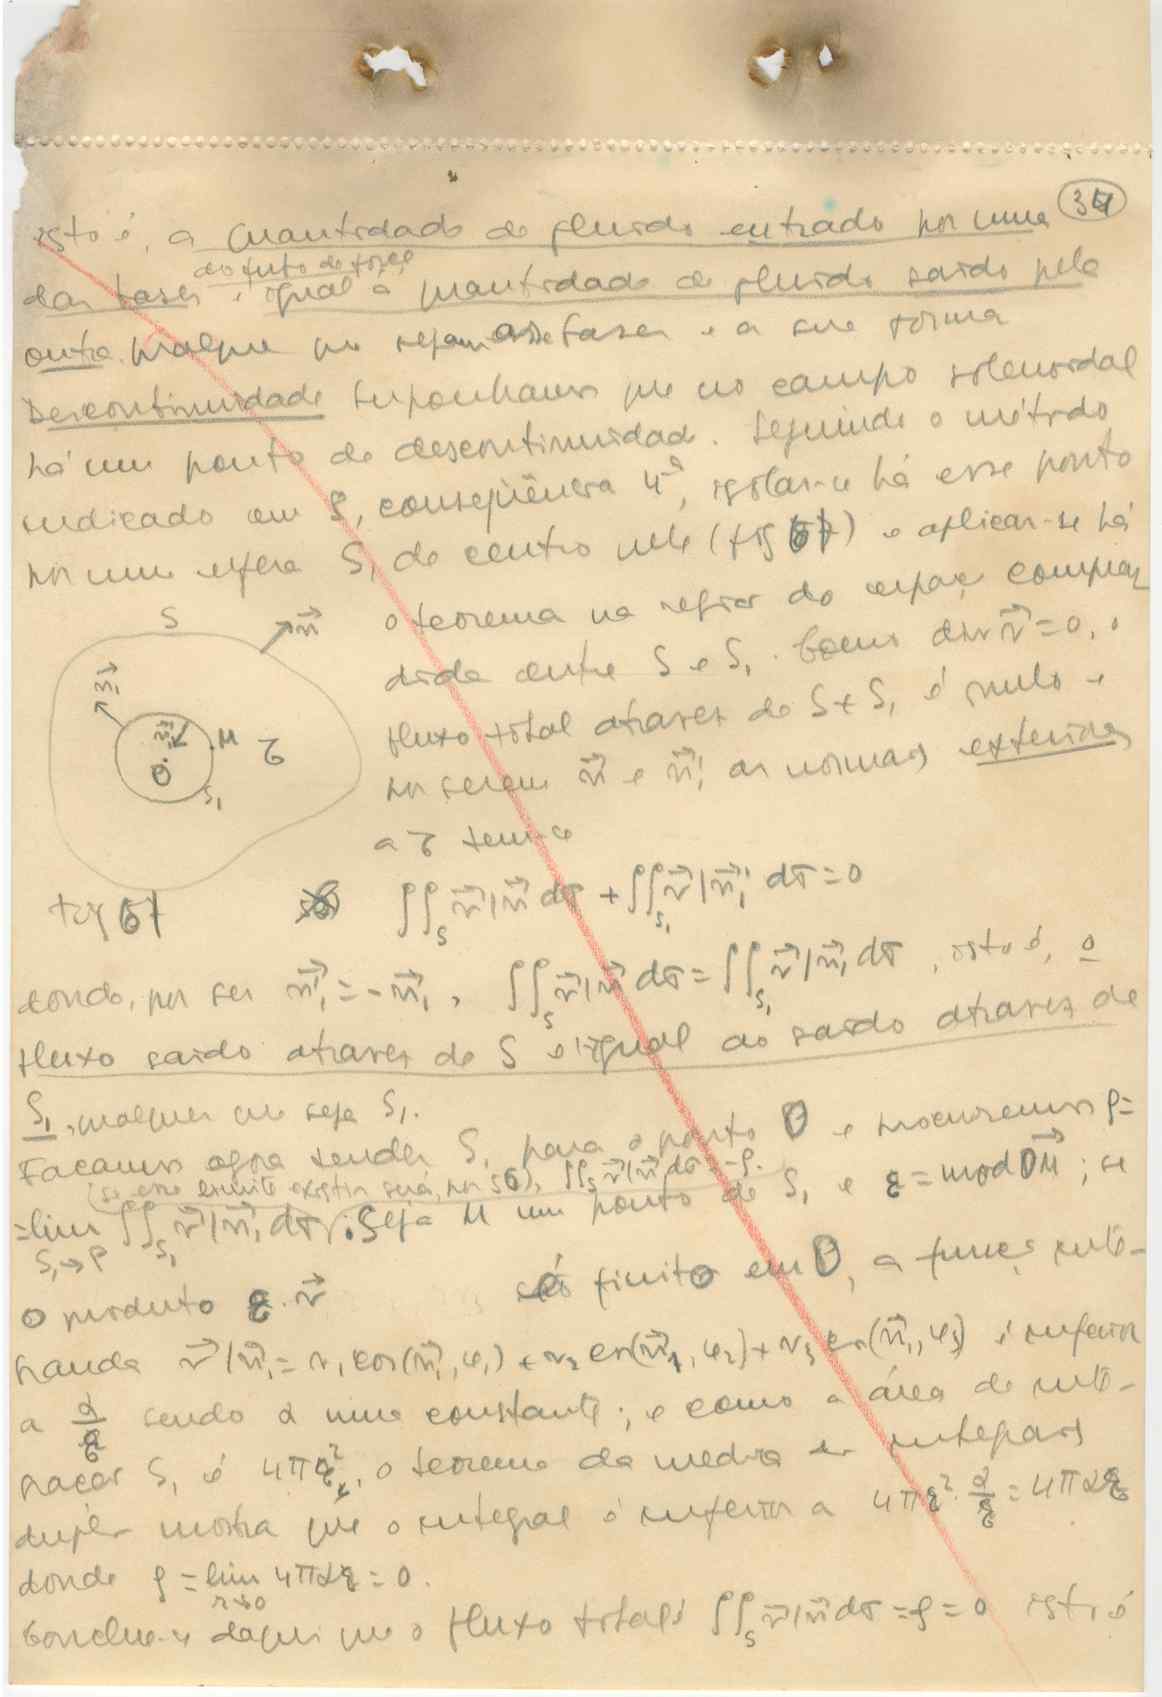 34
isto é, a quantidade de fluido entrado por uma
do tubo de força
das bases é igual à quantidade de fluido saído pela
outra qualquer que sejam as bases e a sua forma
Descontinuidade Suponhamos que no campo solenoidal
há um ponto de descontinuidade. Seguindo o método
indicado em §, conseqüência 4ª, isolar-se há esse ponto
por uma esfera S₁ de centro nele (fig 51) e aplicar-se há
o teorema na região do espaço compreen
dida entre S e S₁. Como div v⃗ = 0, o
fluxo total através de S + S₁ é nulo e
por serem n⃗ e n⃗₁' as normais exteriores
a τ tem-se
S
n⃗
n⃗₁
n⃗₁'
M
τ
O
S₁
fig 51
∫∫_S v⃗|n⃗ dσ + ∫∫_S₁ v⃗|n⃗₁' dσ = 0
donde, por ser n⃗₁' = -n⃗₁, ∫∫_S v⃗|n⃗ dσ = ∫∫_S₁ v⃗|n⃗₁ dσ, isto é, o
fluxo saído através de S é igual ao saído através de
S₁, qualquer que seja S₁.
Façamos agora tender S₁ para o ponto O e procuremos ρ =
(se esse limite existir será, por 50), ∫∫_S v⃗|n⃗ dσ = ρ.
= lim_{S₁→P} ∫∫_S₁ v⃗|n⃗₁ dσ. Seja M um ponto de S₁ e r = mod OM⃗; se
o produto r · v⃗ é finito em O, a função inte-
granda v⃗|n⃗₁ = v₁ cos(n⃗₁, φ₁) + v₂ cos(n⃗₁, φ₂) + v₃ cos(n⃗₁, φ₃) é inferior
a α/r sendo α uma constante; e como a área de inte-
gração S₁ é 4πr², o teorema da média dos integrais
duplos mostra que o integral é inferior a 4πr² · α/r = 4παr
donde ρ = lim_{r→0} 4παr = 0.
Conclue-se daqui que o fluxo total é ∫∫_S v⃗|n⃗ dσ = ρ = 0 isto é